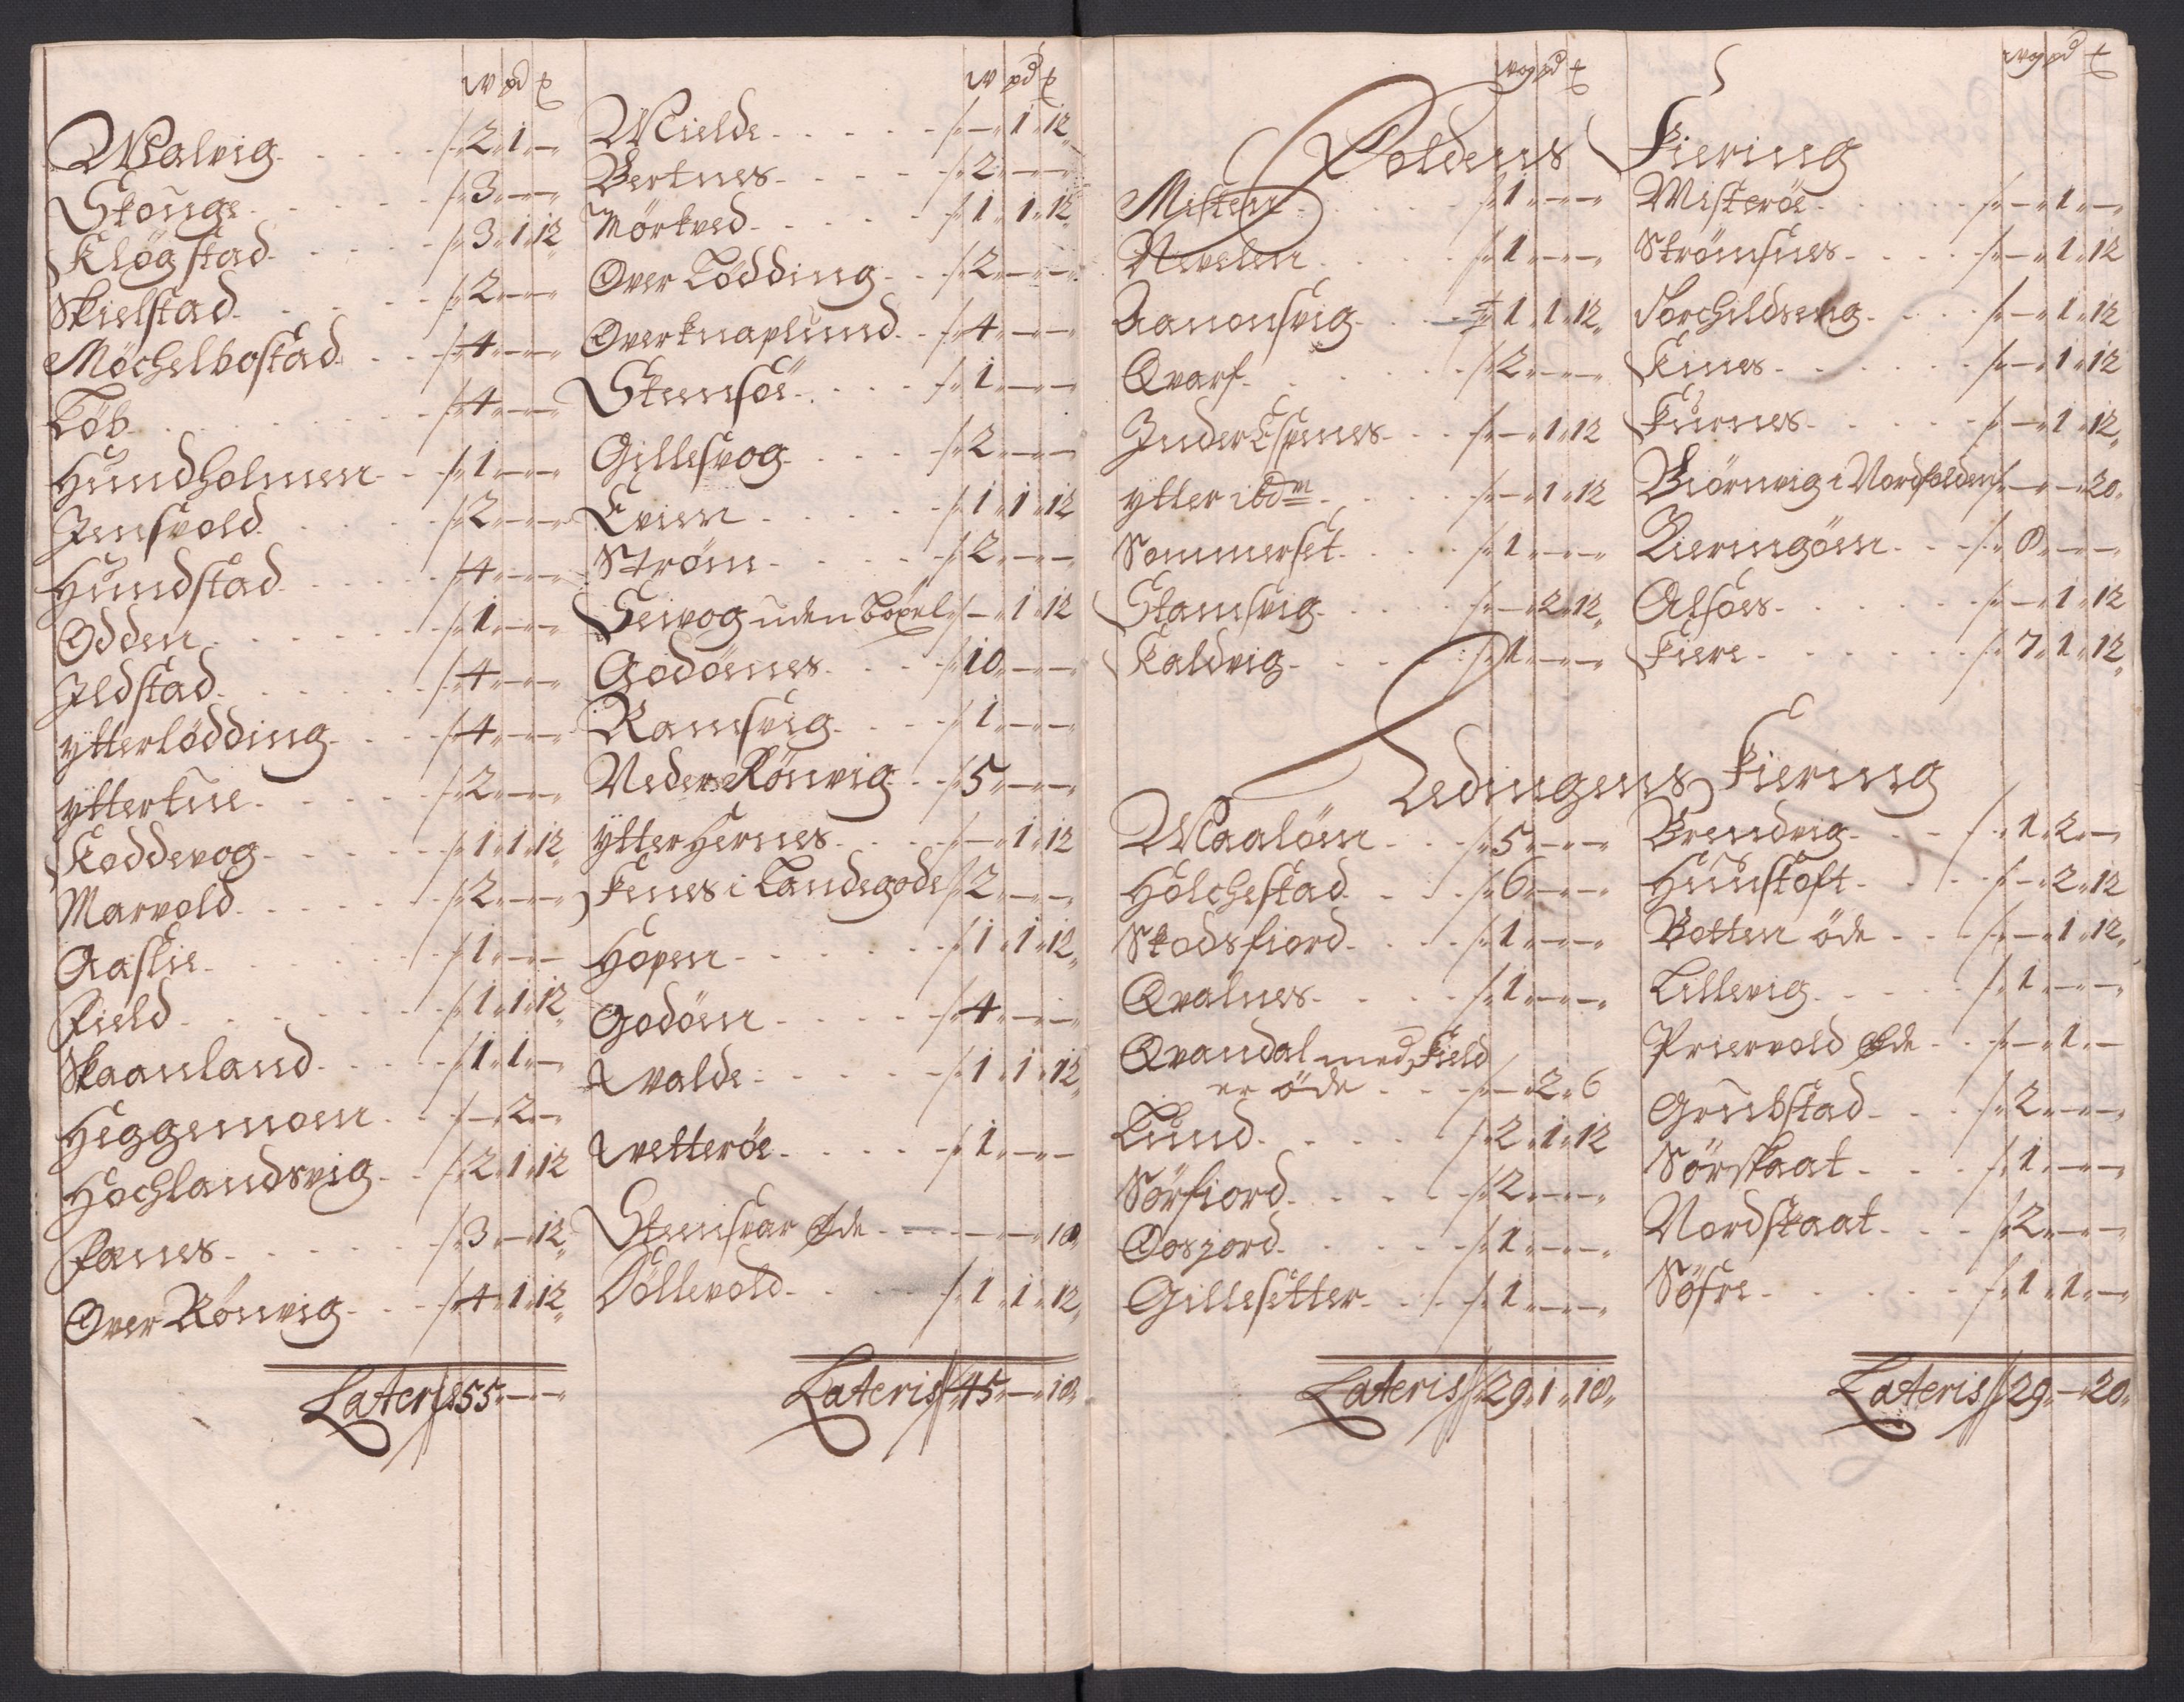 w pd ℔
Walvig - - - - /: 2 „ 1 „ —
Stonge - - - - /: 3 „ — „ —
Kløgstad - - - /: 3 „ 1 „ 12
Skielstad - - - /: 2 „ — „ —
Møchelbostad - - /: 4 „ — „ —
Løb - - - - /: 4 „ — „ —
Hundholmen - - /: 1 „ — „ —
Jensvold - - - /: 2 „ — „ —
Hundstad - - - /: 4 „ — „ —
Odden - - - - /: 1 „ — „ —
Ildstad - - - /: 4 „ — „ —
ytterlødding - - - /: 4 „ — „ —
yttertue - - - /: 2 „ — „ —
Koddevog - - - /: 1 „ 1 „ 12
Marvold - - - /: 2 „ — „ —
Aaslie - - - - /: 1 „ — „ —
Field - - - - /: 1 „ 1 „ 12
Skaanland - - - /: 1 „ 1 „ —
Heggemoen - - /: — „ 2 „ —
Hochlandsvig - - /: 2 „ 1 „ 12
Fanes - - - - /: 3 „ — „ 12
Over Rønvig - - - /: 4 „ 1 „ 12
Lateris 55 „ — „ —
w pd ℔
Mielde - - - - /: — „ 1 „ 12
Bertnes - - - - /: 2 „ — „ —
Mørkved - - - /: 1 „ 1 „ 12
Over Lødding - - /: 2 „ — „ —
Overknaplund - - /: 4 „ — „ —
Stensøe - - - /: 1 „ — „ —
Gillesvog - - - /: 2 „ — „ —
Evien - - - - /: 1 „ 1 „ 12
Strøm - - - - /: 2 „ — „ —
Seivog uden Bøxel /: — „ 1 „ 12
Godønes - - - /: 10 „ — „ —
Ramsvig - - - /: 1 „ — „ —
Neder Rønvig - - /: 5 „ — „ —
ytter Hernes - - - /: — „ 1 „ 12
Fenes i Landegode /: 2 „ — „ —
Hopen - - - - /: 1 „ 1 „ 12
Godøen - - - - /: 4 „ — „ —
Walde - - - - /: 1 „ 1 „ 12
Wetterøe - - - - /: 1 „ — „ —
Stensvar Øde - - - — „ — „ 18
Tøllevold - - - /: 1 „ 1 „ 12
Lateris /: 45 „ — „ 18
wog pd ℔
wog pd ℔
Foldens Fiering
Misten - - - - /: 1 „ — „ —
Nevelen - - - - /: 1 „ — „ —
Aanonsvig - - - /: 1 „ 1 „ 12
Qvarf - - - - /: 2 „ — „ —
Inder Espenes - - /: — „ 1 „ 12
ytter ibdm - - - /: — „ 1 „ 12
Sommerset - - - /: 1 „ — „ —
Stamsvig - - - /: — „ 2 „ 12
Kaldvig - - - - /: 1 „ — „ —
Misterøe - - - /: — „ 1 „ —
Strømsnes - - - /: — „ 1 „ 12
Torchildseng - - - /: — „ 1 „ 12
Kines - - - - /: — „ 1 „ 12
Furnes - - - - /: — „ 1 „ 12
Biørnvig i Nordfolden /: — „ — „ 20
Kieringøen - - - /: 8 „ — „ —
Alsøes - - - - /: — „ 1 „ 12
Fiere - - - - /: 7 „ 1 „ 12
Ledingens Fiering
Maaløen - - - /: 5 „ — „ —
Holchestad - - - /: 6 „ — „ —
Skodsfiord - - - /: 1 „ — „ —
Qvalnes - - - /: 1 „ — „ —
Qvandal med Field
er øde - - /: — „ 2 „ 6
Lund - - - - /: 2 „ 1 „ 12
Sørfiord - - - /: 2 „ — „ —
Oosjord - - - - /: 1 „ — „ —
Gillesetter - - - /: 1 „ — „ —
Lateris /: 29 „ 1 „ 18
Brendvig - - - /: 1 „ 2 „ —
Hunstoft - - - /: — „ 2 „ 12
Botten øde - - - /: — „ 1 „ 12
Lillevig - - - - /: 1 „ — „ —
Priervold Øde - - /: — „ 1 „ —
Grubstad - - - /: 2 „ — „ —
Sørskaat - - - /: 1 „ — „ —
Nordskaat - - - /: 2 „ — „ —
Søfre - - - - /: 1 „ 1 „ —
Lateris /: 29 „ — „ 20